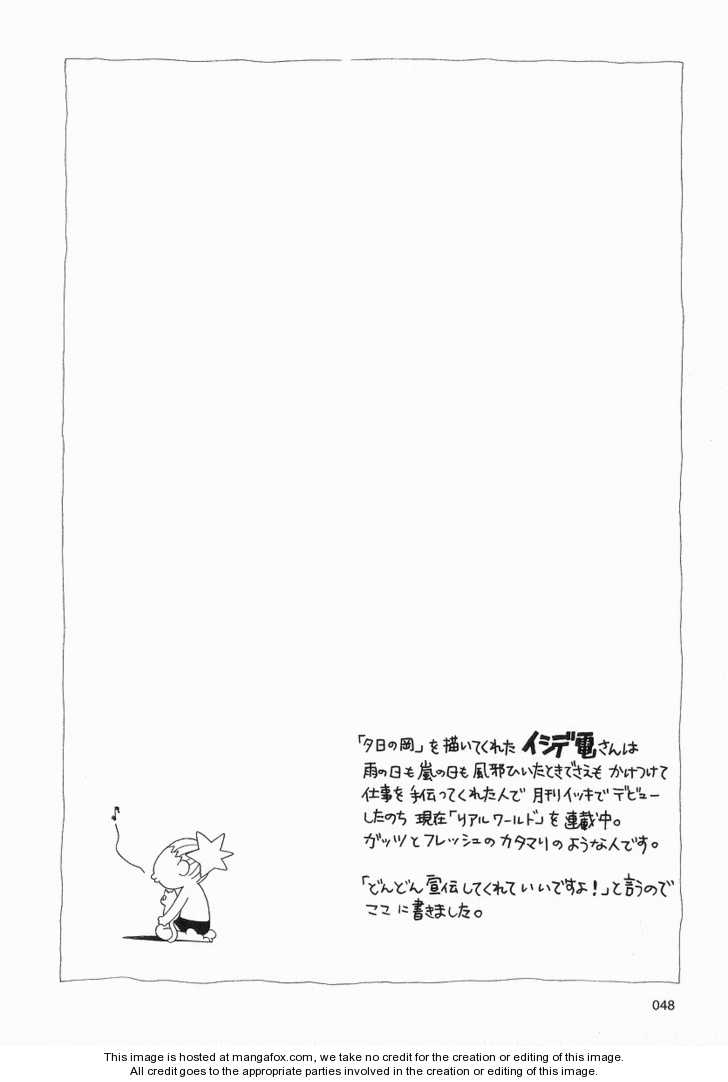 「夕日の岡」を描いてくれた イシデ電さんは
雨の日も嵐の日も風邪ひいたときでさえも かけつけて
仕事を手伝ってくれた人で 月刊イッキでデビュー
したのち 現在「リアルワールド」を連載中。
ガッツとフレッシュのカタマリのような人です。
「どんどん宣伝してくれていいですよ！」と言うので
ここに書きました。
048
This image is hosted at mangafox.com, we take no credit for the creation or editing of this image.
All credit goes to the appropriate parties involved in the creation or editing of this image.